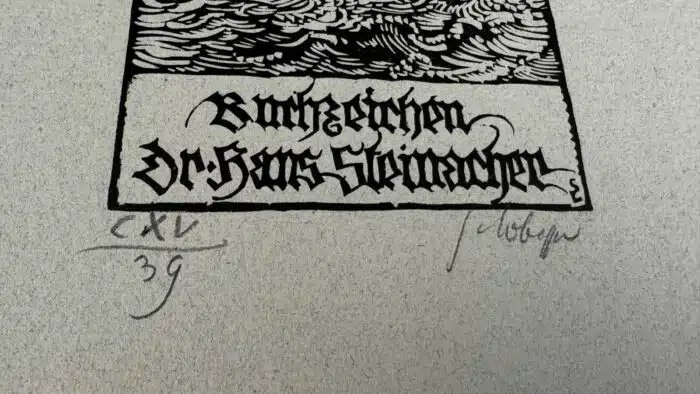 Buchzeichen
Dr: Hans Steinacher
SL
CXV
39